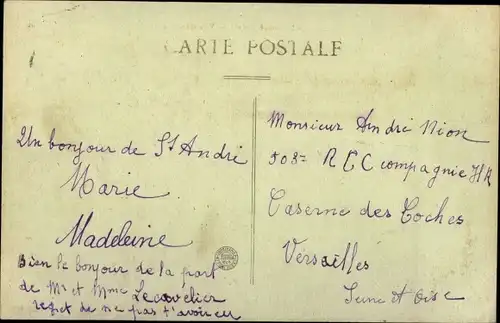 CARTE POSTALE
Un bonjour de St André
Marie
Madeleine
Bien le bonjour de la part
de Mr et Mme Lecavelier
regret de ne pas t'avoir eu
Monsieur André Nion
508e R C C compagnie HR
Caserne des Coches
Versailles
Seine et Oise